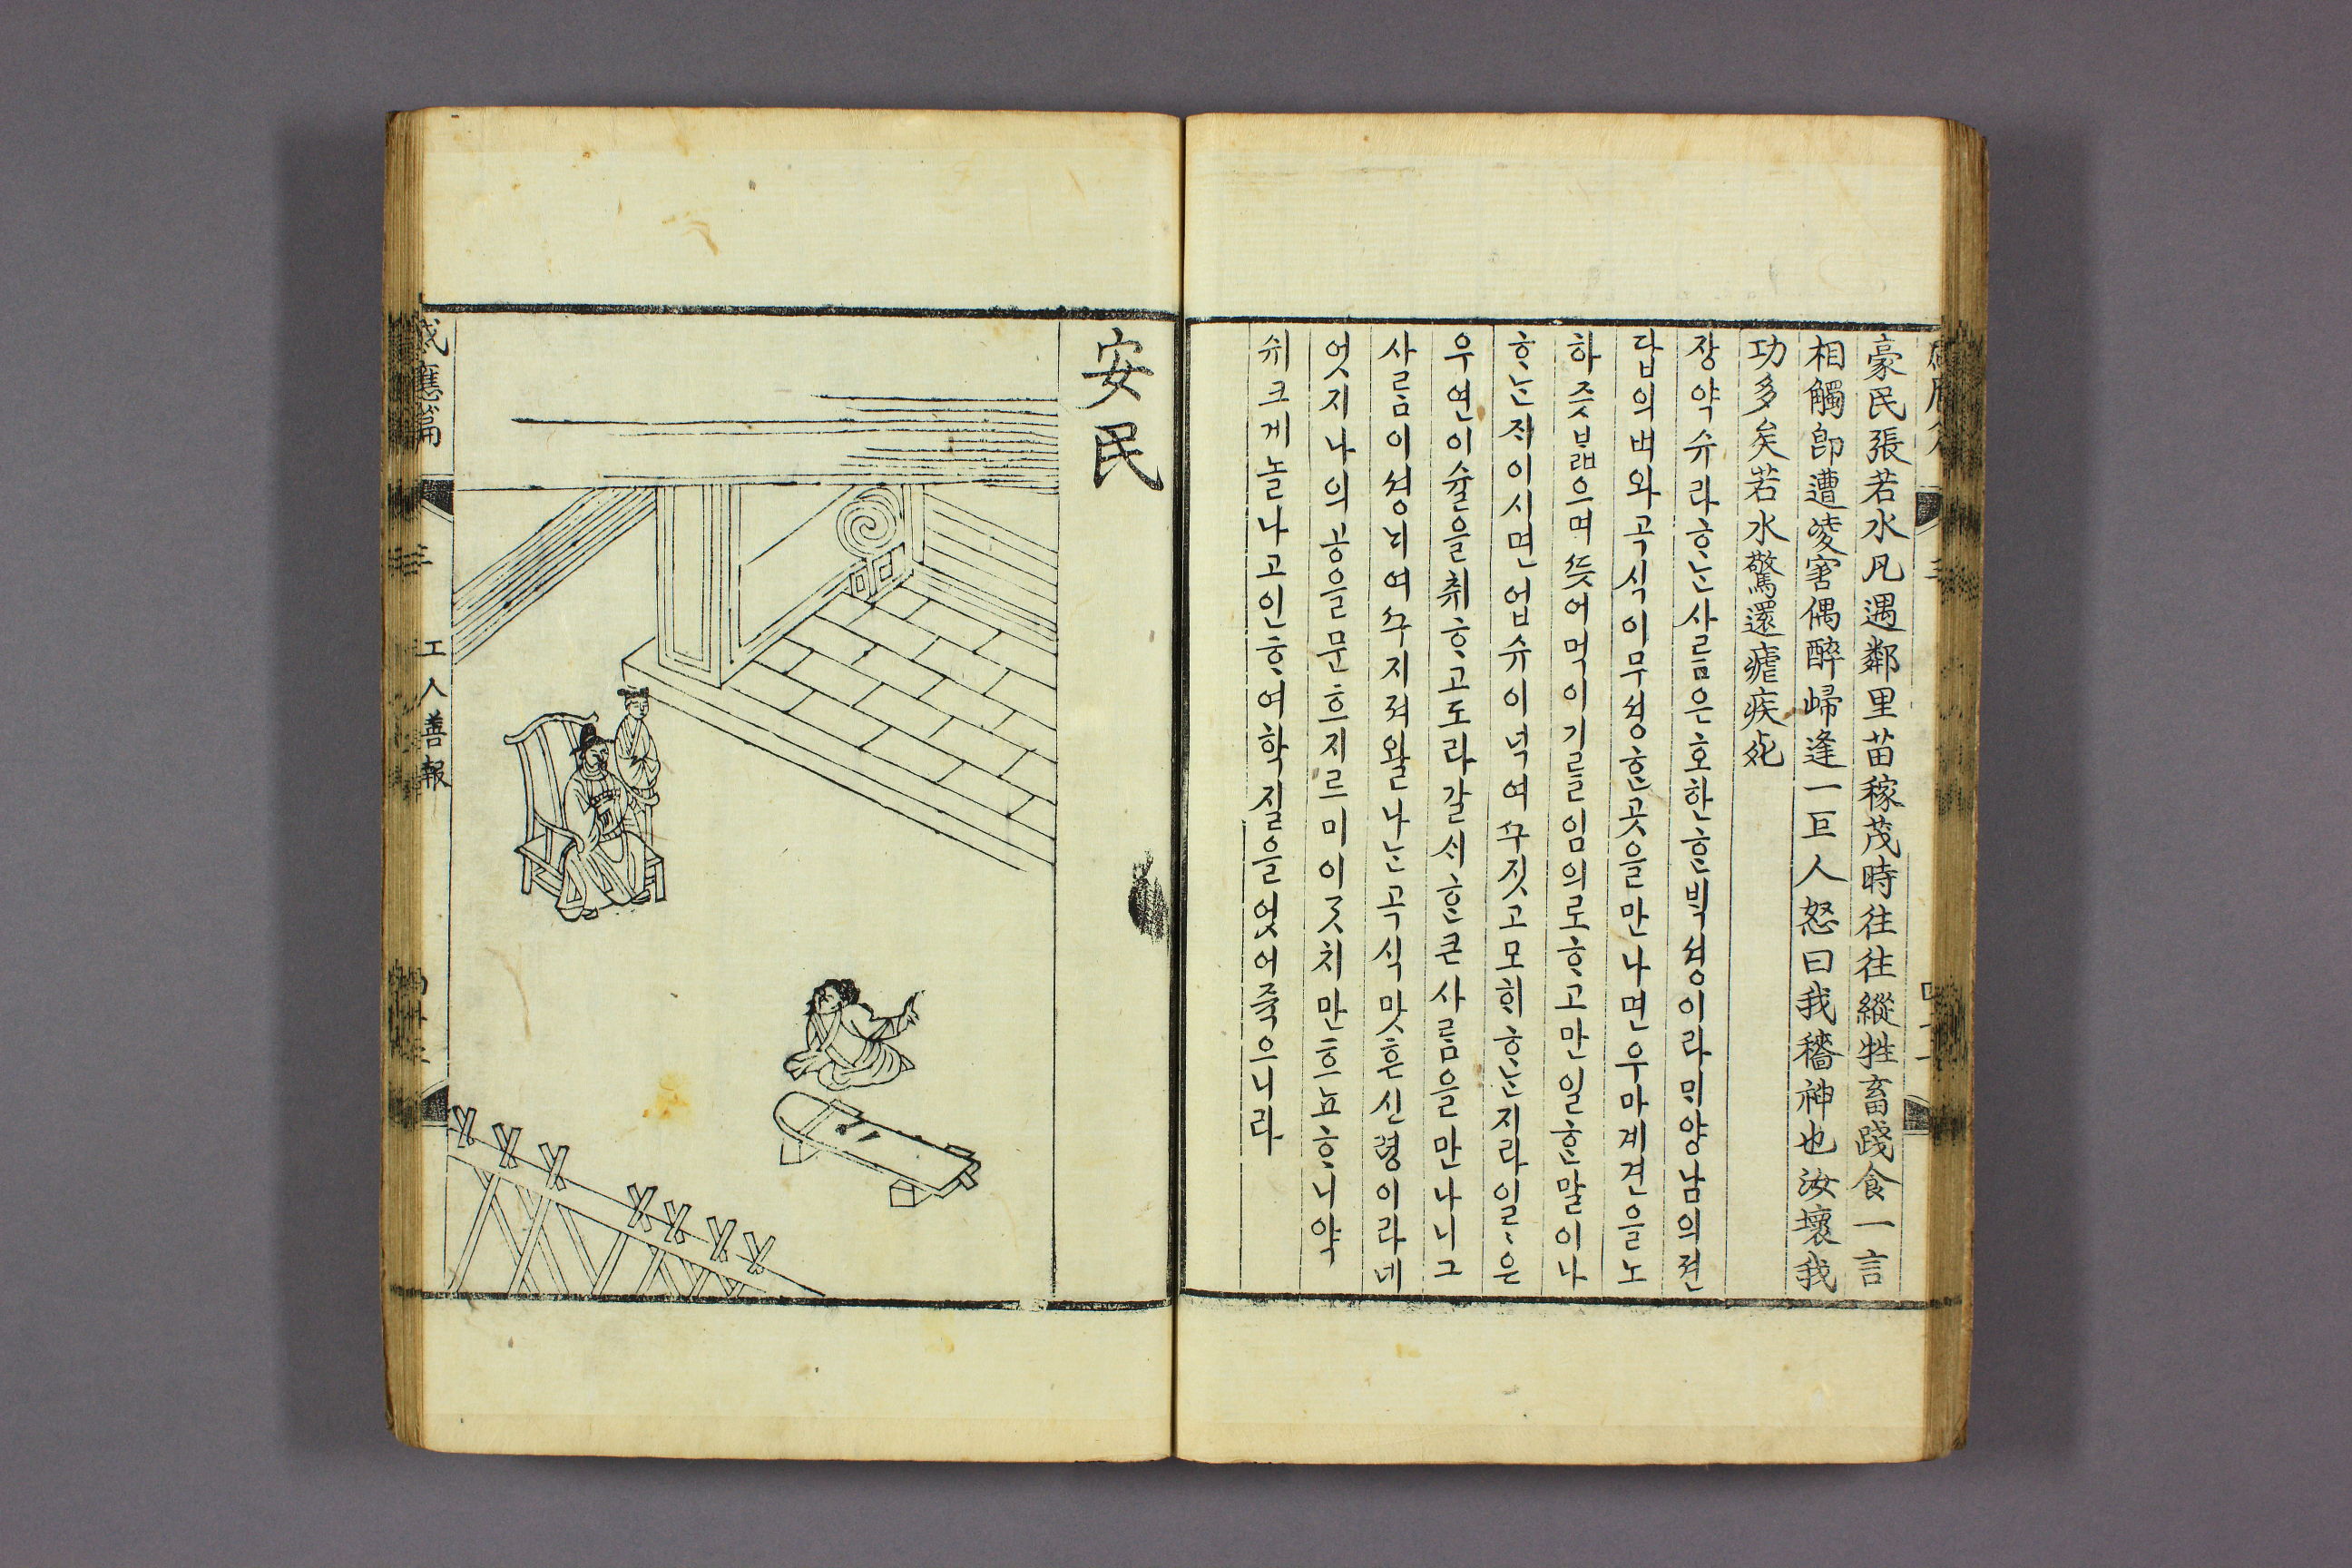 豪民張若水凡遇鄰里苗稼茂時往往縱牲畜踐食一言
相觸卽遭凌害偶醉歸逢一巨人怒曰我穡神也汝壞我
功多矣若水驚還瘧疾死
쟝약슈라ᄒᆞᄂᆞᆫ사ᄅᆞᆷ은호한ᄒᆞᆫᄇᆡᆨ셩이라ᄆᆡ양남의젼
답의벼와곡식이무셩ᄒᆞᆫ곳을만나면우마계견을노
하즛ᄇᆞᆲ으며ᄯᅳᆺ어먹이기ᄅᆞᆯ임의로ᄒᆞ고만일ᄒᆞᆫ말이나
ᄒᆞᄂᆞᆫᄌᆡ이시면업슈이넉여ᄭᅮ짓고모ᄒᆡᄒᆞᄂᆞᆫ지라일〻은
우연이슐을취ᄒᆞ고도라갈ᄉᆡᄒᆞᆫ큰사ᄅᆞᆷ을만나니그
사ᄅᆞᆷ이셩ᄂᆡ여ᄭᅮ지져왈나ᄂᆞᆫ곡식맛흔신령이라네
엇지나의공을문흐지르미이ᄀᆞᆺ치만흐뇨ᄒᆞ니약
쉬크게놀나고인ᄒᆞ여학질을엇어쥭으니라
安民
感應篇
三
工人善報